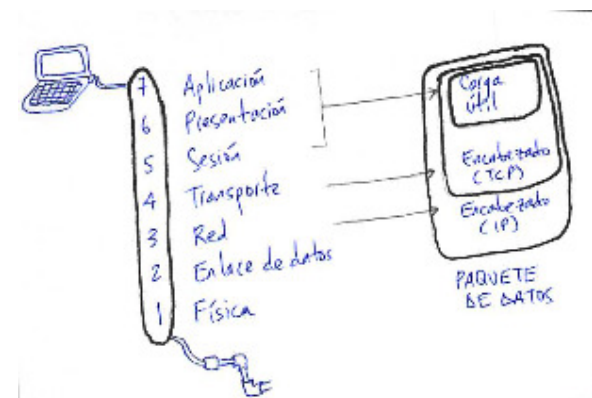 7 Aplicación
6 Presentación
5 Sesión
4 Transporte
3 Red
2 Enlace de datos
1 Física
Carga
útil
Encabezado
(TCP)
Encabezado
(IP)
PAQUETE
DE DATOS